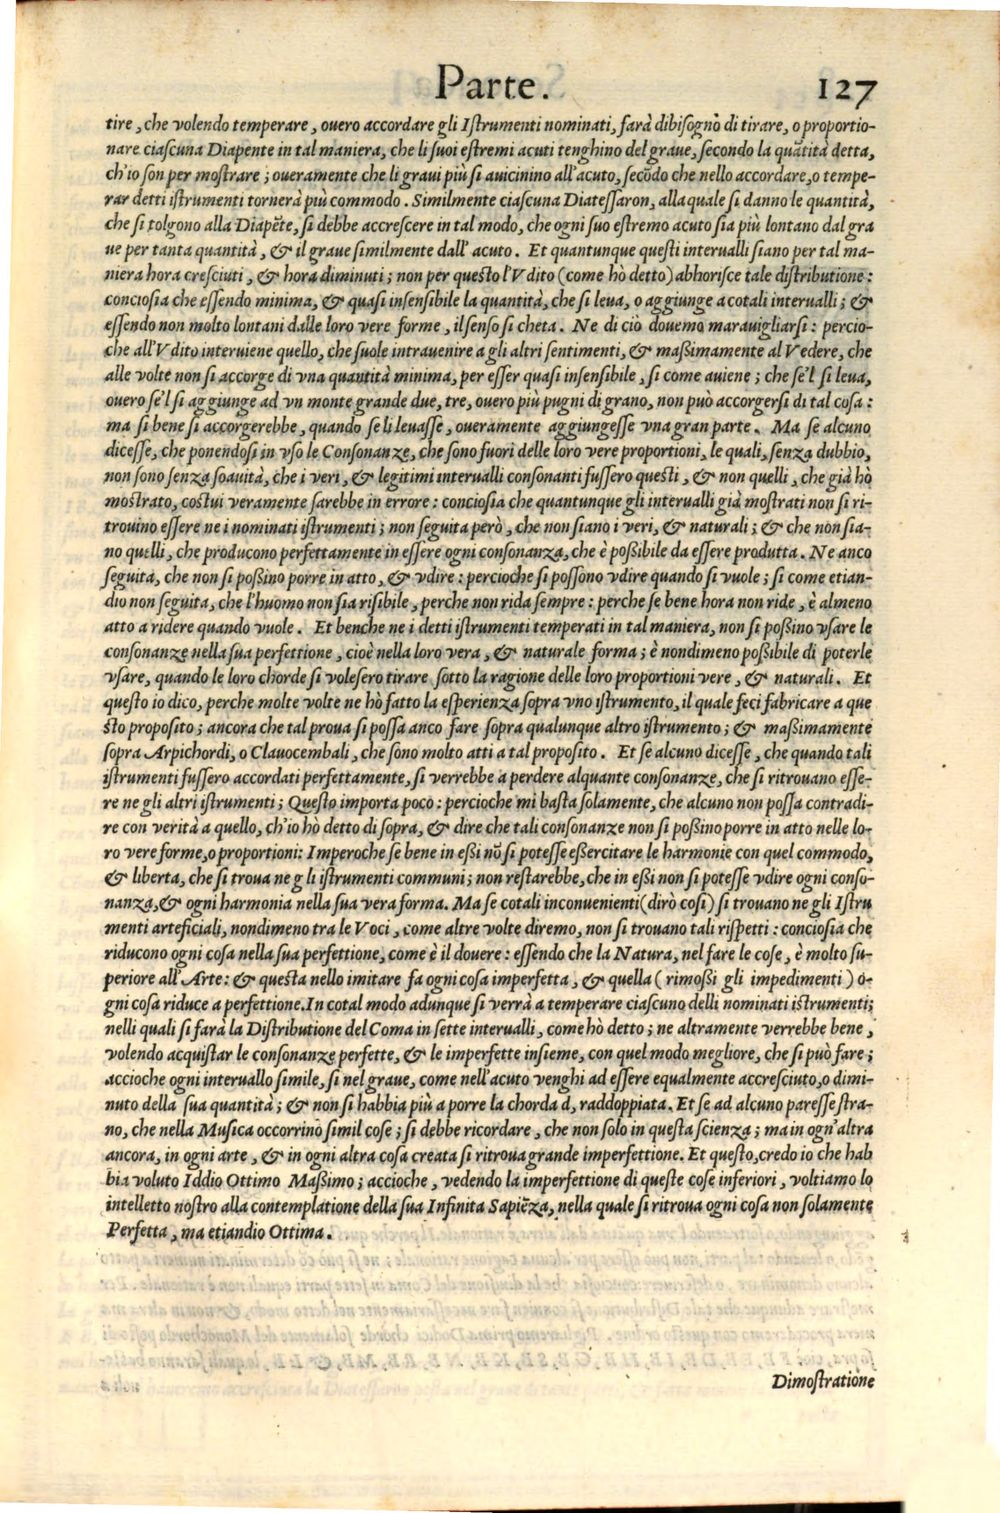 Parte. 127
tire, che volendo temperare, ouero accordare gli Iſtrumenti nominati, ſarà dibiſogno di tirare, o proportio-
nare ciaſcuna Diapente in tal maniera, che li ſuoi eſtremi acuti tenghino del graue, ſecondo la quãtità detta,
ch'io ſon per moſtrare; oueramente che li graui più ſi auicinino all'acuto, ſecõdo che nello accordare, o tempe-
rar detti iſtrumenti tornerà più commodo. Similmente ciaſcuna Diateſſaron, alla quale ſi danno le quantità,
che ſi tolgono alla Diapẽte, ſi debbe accreſcere in tal modo, che ogni ſuo eſtremo acuto ſia più lontano dal gra
ue per tanta quantità, & il graue ſimilmente dall'acuto. Et quantunque queſti interualli ſiano per tal ma-
niera hora creſciuti, & hora diminuti; non per queſto l'Vdito (come hò detto) abhoriſce tale diſtributione:
concioſia che eſſendo minima, & quaſi inſenſibile la quantità, che ſi leua, o aggiunge a cotali interualli; &
eſſendo non molto lontani dalle loro vere forme, il ſenſo ſi cheta. Ne di ciò douemo marauigliarſi: percio-
che all'Vdito interuiene quello, che ſuole intrauenire a gli altri ſentimenti, & maßimamente al Vedere, che
alle volte non ſi accorge di vna quantità minima, per eſſer quaſi inſenſibile, ſi come auiene; che ſe'l ſi leua,
ouero ſe'l ſi aggiunge ad vn monte grande due, tre, ouero più pugni di grano, non può accorgerſi di tal coſa:
ma ſi bene ſi accorgerebbe, quando ſe li leuaſſe, oueramente aggiungeſſe vna gran parte. Ma ſe alcuno
diceſſe, che ponendoſi in vſo le Conſonanze, che ſono fuori delle loro vere proportioni, le quali, ſenza dubbio,
non ſono ſenza ſoauità, che i veri, & legitimi interualli conſonanti fuſſero queſti, & non quelli, che già hò
moſtrato, coſtui veramente ſarebbe in errore: concioſia che quantunque gli interualli già moſtrati non ſi ri-
trouino eſſere ne i nominati iſtrumenti; non ſeguita però, che non ſiano i veri, & naturali; & che non ſia-
no quelli, che producono perfettamente in eſſere ogni conſonanza, che è poßibile da eſſere produtta. Ne anco
ſeguita, che non ſi poßino porre in atto, & vdire: percioche ſi poſſono vdire quando ſi vuole; ſi come etian-
dio non ſeguita, che l'huomo non ſia riſibile, perche non rida ſempre: perche ſe bene hora non ride, è almeno
atto a ridere quando vuole. Et benche ne i detti iſtrumenti temperati in tal maniera, non ſi poßino vſare le
conſonanze nella ſua perfettione, cioè nella loro vera, & naturale forma; è nondimeno poßibile di poterle
vſare, quando le loro chorde ſi voleſero tirare ſotto la ragione delle loro proportioni vere, & naturali. Et
queſto io dico, perche molte volte ne hò fatto la eſperienza ſopra vno iſtrumento, il quale feci fabricare a que
ſto propoſito; ancora che tal proua ſi poſſa anco fare ſopra qualunque altro iſtrumento; & maßimamente
ſopra Arpichordi, o Clauocembali, che ſono molto atti a tal propoſito. Et ſe alcuno diceſſe, che quando tali
iſtrumenti fuſſero accordati perfettamente, ſi verrebbe a perdere alquante conſonanze, che ſi ritrouano eſſe-
re ne gli altri iſtrumenti; Queſto importa poco: percioche mi baſta ſolamente, che alcuno non poſſa contradi-
re con verità a quello, ch'io hò detto di ſopra, & dire che tali conſonanze non ſi poßino porre in atto nelle lo-
ro vere forme, o proportioni: Imperoche ſe bene in eßi nõ ſi poteſſe eßercitare le harmonie con quel commodo,
& liberta, che ſi troua ne gli iſtrumenti communi; non reſtarebbe, che in eßi non ſi poteſſe vdire ogni conſo-
nanza, & ogni harmonia nella ſua vera forma. Ma ſe cotali inconuenienti (dirò coſi) ſi trouano ne gli Iſtru
menti arteficiali, nondimeno tra le Voci, come altre volte diremo, non ſi trouano tali riſpetti: concioſia che
riducono ogni coſa nella ſua perfettione, come è il douere: eſſendo che la Natura, nel fare le coſe, è molto ſu-
periore all'Arte: & queſta nello imitare fa ogni coſa imperfetta, & quella (rimoßi gli impedimenti) o-
gni coſa riduce a perfettione. In cotal modo adunque ſi verrà a temperare ciaſcuno delli nominati iſtrumenti;
nelli quali ſi farà la Diſtributione del Coma in ſette interualli, come hò detto; ne altramente verrebbe bene,
volendo acquiſtar le conſonanze perfette, & le imperfette inſieme, con quel modo megliore, che ſi può fare;
accioche ogni interuallo ſimile, ſi nel graue, come nell'acuto venghi ad eſſere equalmente accreſciuto, o dimi-
nuto della ſua quantità; & non ſi habbia più a porre la chorda d, raddoppiata. Et ſe ad alcuno pareſſe ſtra-
no, che nella Muſica occorrino ſimil coſe; ſi debbe ricordare, che non ſolo in queſta ſcienza; ma in ogn'altra
ancora, in ogni arte, & in ogni altra coſa creata ſi ritroua grande imperfettione. Et queſto, credo io che hab
bia voluto Iddio Ottimo Maßimo; accioche, vedendo la imperfettione di queſte coſe inferiori, voltiamo lo
intelletto noſtro alla contemplatione della ſua Infinita Sapiẽza, nella quale ſi ritroua ogni coſa non ſolamente
Perfetta, ma etiandio Ottima.
Dimoſtratione